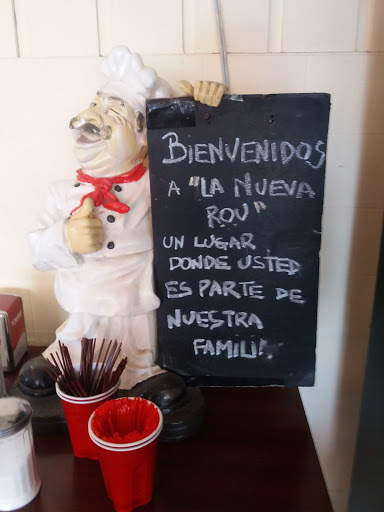 BIENVENIDOS
A "LA NUEVA
ROU"
UN LUGAR
DONDE USTED
ES PARTE DE
NUESTRA